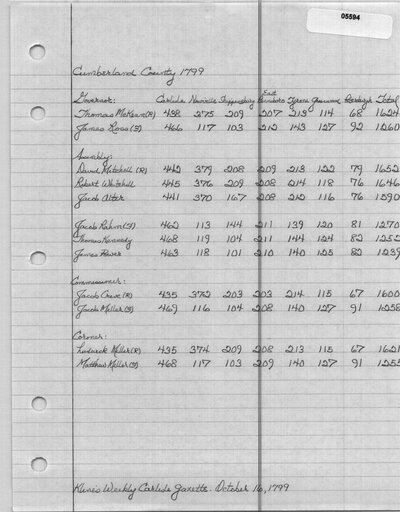 05594
Cumberland County 1799
East
Governor: Carlisle Newville Shippensburg Pennsboro Tyrone Greenwood Total
Thomas McKean(R) 438 275 209 207 213 114 68 1624
James Ross(F) 466 117 103 212 143 127 92 1260
Assembly:
David Mitchell (R) 442 379 208 209 213 122 79 1652
Robert Whitehill 445 376 209 208 214 118 76 1646
Jacob Alter 441 370 167 208 212 116 76 1590
Jacob Rahm(F) 462 113 144 211 139 120 81 1270
Thomas Kennedy 468 119 104 211 144 124 82 1252
James 463 118 101 210 140 125 82 1239
Commissioner:
Jacob Crever (R) 435 372 203 203 214 115 67 1600
Jacob Miller (F) 469 116 104 208 140 127 91 1258
Coroner:
Frederick Miller(R) 435 374 209 208 213 115 67 1621
Matthew Miller(F) 468 117 103 209 140 127 91 1255
Kline's Weekly Carlisle Gazette. October 16, 1799